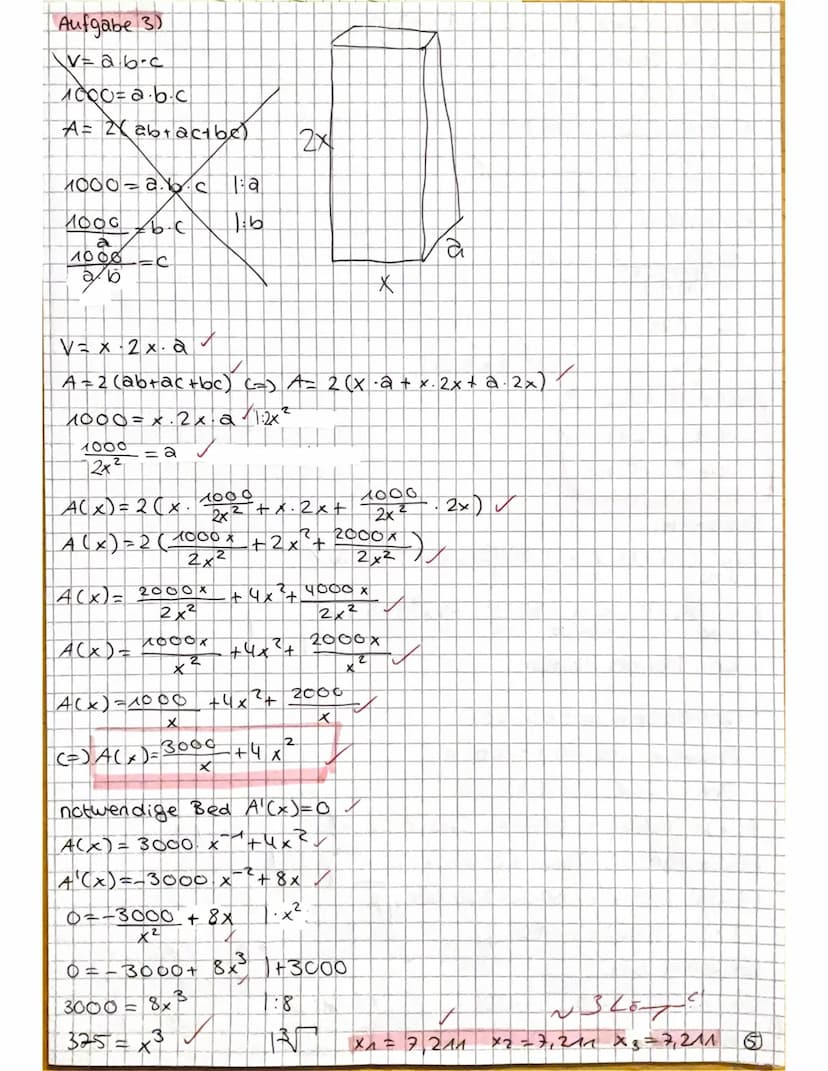 Aufgabe 3)
V = a·b·c
1000 = a·b·c
A = 2(ab+ac+bc)
1000 = a·b·c |:a
1000/a = b·c |:b
1000/(a·b) = c
2x
a
x
V = x·2x·a ✓
A = 2(ab+ac+bc) ✓ (=) A = 2(x·a + x·2x + a·2x) ✓
1000 = x·2x·a ✓ |:2x²
1000/2x² = a ✓
A(x) = 2(x · 1000/2x² + x·2x + 1000/2x² · 2x) ✓
A(x) = 2(1000x/2x² + 2x² + 2000x/2x²) ✓
A(x) = 2000x/2x² + 4x² + 4000x/2x² ✓
A(x) = 1000x/x² + 4x² + 2000x/x² ✓
A(x) = 1000/x + 4x² + 2000/x ✓
(=) A(x) = 3000/x + 4x² ✓
notwendige Bed A'(x)=0 ✓
A(x) = 3000·x⁻¹ + 4x² ✓
A'(x) = -3000·x⁻² + 8x ✓
0 = -3000/x² + 8x |·x² ✓
0 = -3000 + 8x³ |+3000
3000 = 8x³ |:8
325 = x³ ✓ |∛
x1 = 7,211 ✓ x2 = 7,211 x3 = 7,211 5